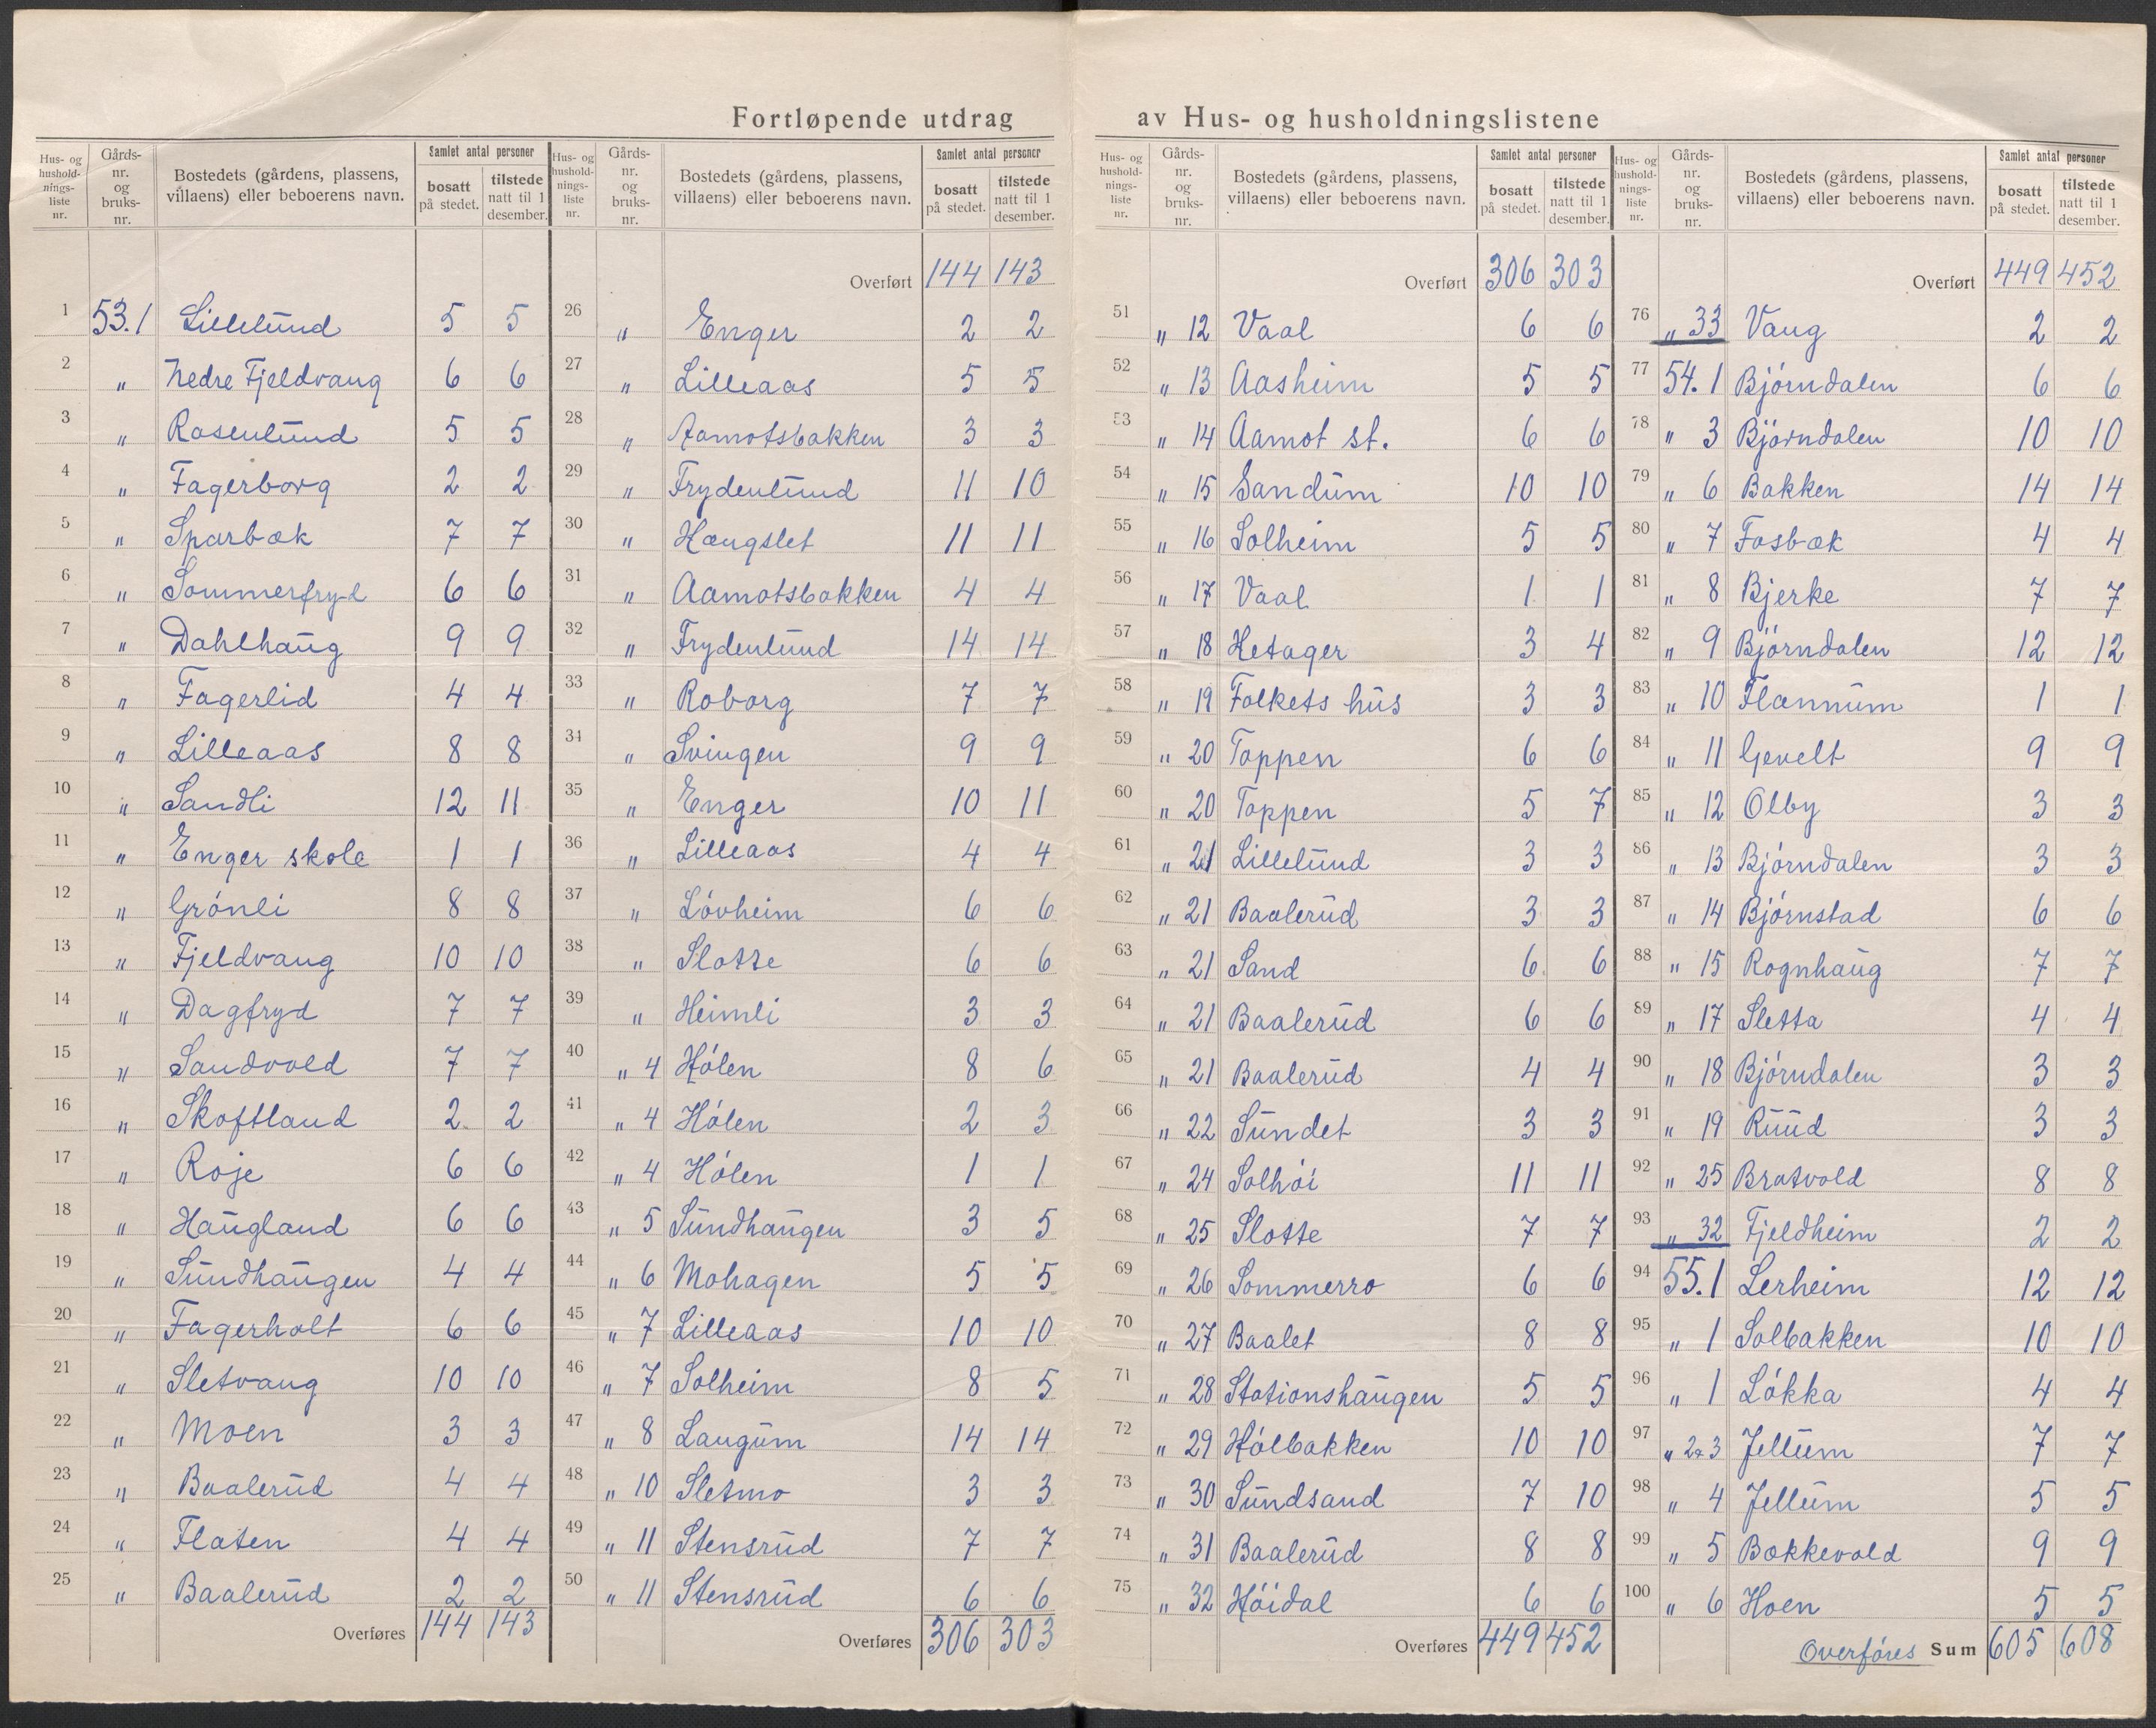 Fortløpende utdrag av Hus- og husholdningslistene
Hus- og hushold-nings-liste nr. | Gårds-nr. og bruks-nr. | Bostedets (gårdens, plassens, villaens) eller beboerens navn. | Samlet antal personer | bosatt på stedet. | tilstede natt til 1 desember.
1 53.1 Lillelund 5 5
2 " Nedre Fjeldvang 6 6
3 " Rosenlund 5 5
4 " Fagerborg 2 2
5 " Sparbæk 7 7
6 " Sommerfryd 6 6
7 " Dahlhaug 9 9
8 " Fagerlid 4 4
9 " Lilleaas 8 8
10 " Sandli 12 11
11 " Enger skole 1 1
12 " Grónli 8 8
13 " Fjeldvang 10 10
14 " Dagfryd 7 7
15 " Sandvold 7 7
16 " Skoftland 2 2
17 " Roje 6 6
18 " Haugland 6 6
19 " Sundhaugen 4 4
20 " Fagerholt 6 6
21 " Sletvang 10 10
22 " Moen 3 3
23 " Baalerud 4 4
24 " Flaten 4 4
25 " Baalerud 2 2
Overføres 144 143
Hus- og hushold-nings-liste nr. | Gårds-nr. og bruks-nr. | Bostedets (gårdens, plassens, villaens) eller beboerens navn. | Samlet antal personer | bosatt på stedet. | tilstede natt til 1 desember.
Overført 144 143
26 " Enger 2 2
27 " Lilleaas 5 5
28 " Aamotsbakken 3 3
29 " Frydenlund 11 10
30 " Hængslet 11 11
31 " Aamotsbakken 4 4
32 " Frydenlund 14 14
33 " Roborg 7 7
34 " Svingen 9 9
35 " Enger 10 11
36 " Lilleaas 4 4
37 " Lóvheim 6 6
38 " Slotte 6 6
39 " Heimli 3 3
40 " 4 Hólen 8 6
41 " 4 Hólen 2 3
42 " 4 Hólen 1 1
43 " 5 Sundhaugen 3 5
44 " 6 Mohagen 5 5
45 " 7 Lilleaas 10 10
46 " 7 Solheim 8 5
47 " 8 Laugum 14 14
48 " 10 Sletmo 3 3
49 " 11 Stensrud 7 7
50 " 11 Stensrud 6 6
Overføres 306 303
Hus- og hushold-nings-liste nr. | Gårds-nr. og bruks-nr. | Bostedets (gårdens, plassens, villaens) eller beboerens navn. | Samlet antal personer | bosatt på stedet. | tilstede natt til 1 desember.
Overført 306 303
51 " 12 Vaal 6 6
52 " 13 Aasheim 5 5
53 " 14 Aamot st. 6 6
54 " 15 Sandum 10 10
55 " 16 Solheim 5 5
56 " 17 Vaal 1 1
57 " 18 Hetager 3 4
58 " 19 Folkets hus 3 3
59 " 20 Toppen 6 6
60 " 20 Toppen 5 7
61 " 21 Lillelund 3 3
62 " 21 Baalerud 3 3
63 " 21 Sand 6 6
64 " 21 Baalerud 6 6
65 " 21 Baalerud 4 4
66 " 22 Sundet 3 3
67 " 24 Solhói 11 11
68 " 25 Slotte 7 7
69 " 26 Sommerro 6 6
70 " 27 Baalet 8 8
71 " 28 Stationshaugen 5 5
72 " 29 Hólbakken 10 10
73 " 30 Sundsand 7 10
74 " 31 Baalerud 8 8
75 " 32 Hóidal 6 6
Overføres 449 452
Hus- og hushold-nings-liste nr. | Gårds-nr. og bruks-nr. | Bostedets (gårdens, plassens, villaens) eller beboerens navn. | Samlet antal personer | bosatt på stedet. | tilstede natt til 1 desember.
Overført 449 452
76 " 33 Vang 2 2
77 54.1 Bjórndalen 6 6
78 " 3 Bjórndalen 10 10
79 " 6 Bakken 14 14
80 " 7 Fosbæk 4 4
81 " 8 Bjerke 7 7
82 " 9 Bjórndalen 12 12
83 " 10 Flannum 1 1
84 " 11 Gevelt 9 9
85 " 12 Olby 3 3
86 " 13 Bjórndalen 3 3
87 " 14 Bjórnstad 6 6
88 " 15 Rognhaug 7 7
89 " 17 Sletta 4 4
90 " 18 Bjórndalen 3 3
91 " 19 Ruud 3 3
92 " 25 Bratvold 8 8
93 " 32 Fjeldheim 2 2
94 55.1 Lerheim 12 12
95 " 1 Solbakken 10 10
96 " 1 Lókka 4 4
97 " 2+3 Jellum 7 7
98 " 4 Jellum 5 5
99 " 5 Bækkevold 9 9
100 " 6 Hoen 5 5
Overfóres Sum 605 608